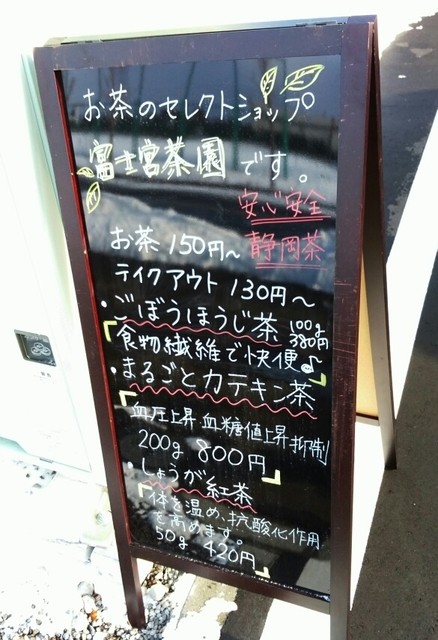 お茶のセレクトショップ
富士宮茶園です。
安心安全
お茶150円~ 静岡茶
テイクアウト130円~
・ごぼうほうじ茶 100g 380円
「食物繊維で快便♪」
・まるごとカテキン茶
「血圧上昇血糖値上昇抑制
200g 800円」
・しょうが紅茶
「体を温め、抗酸化作用
を高めます。
50g 420円」